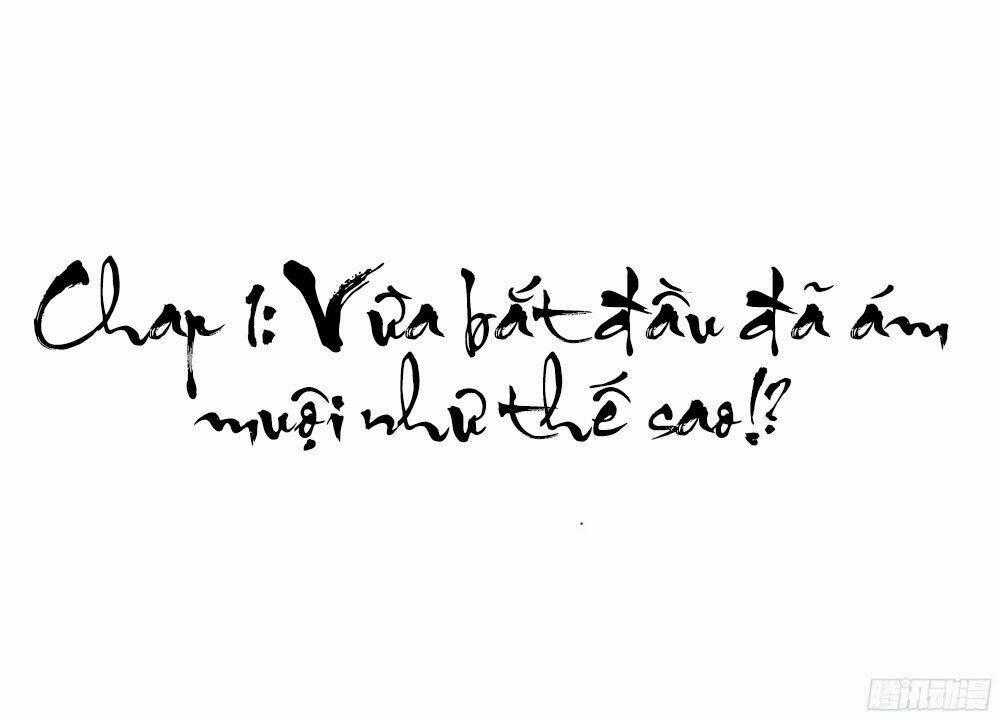 Chap 1: Vừa bắt đầu đã ám
muội như thế sao!?
腾讯动漫